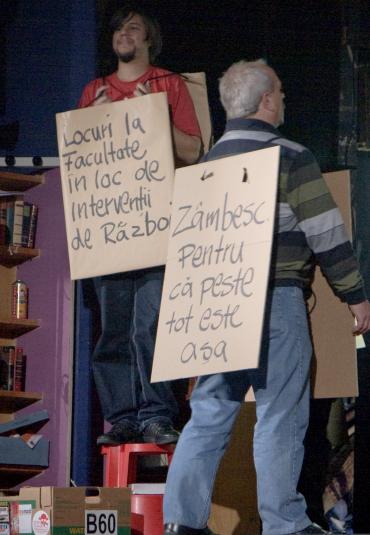 Locuri la
Facultate
în loc de
Intervenții
de Război
Zâmbesc
Pentru
că peste
tot este
așa
B60